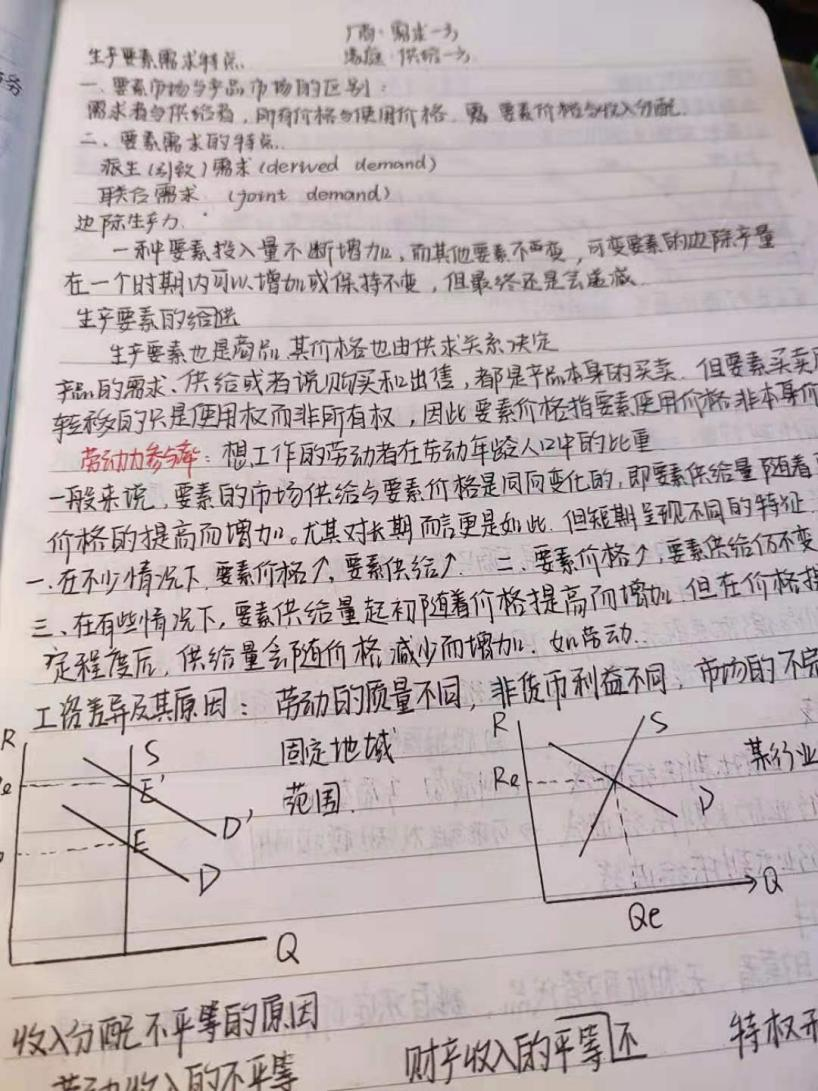 厂商·需求一方
生产要素需求特点    家庭·供给一方
一、要素市场与产品市场的区别：
需求者与供给者，所有价格与使用价格. 要素价格与收入分配.
二、要素需求的特点.
派生(引致)需求(derived demand)
联合需求 (joint demand)
边际生产力.
一种要素投入量不断增加，而其他要素不变，可变要素的边际产量
在一个时期内可以增加或保持不变，但最终还是会递减.
生产要素的给供
生产要素也是商品，其价格也由供求关系决定
产品的需求、供给或者说购买和出售，都是产品本身的买卖. 但要素买卖
转移的只是使用权而非所有权，因此要素价格指要素使用价格非本身价
劳动力参与率：想工作的劳动者在劳动年龄人口中的比重
一般来说，要素的市场供给与要素价格是同向变化的，即要素供给量随着
价格的提高而增加。尤其对长期而言更是如此. 但短期呈现不同的特征.
一.在不少情况下，要素价格↑，要素供给↑. 二、要素价格↑，要素供给仍不变
三、在有些情况下，要素供给量起初随着价格提高而增加. 但在价格提
定程度后，供给量会随价格减少而增加. 如劳动.
工资差异及其原因：劳动的质量不同，非货币利益不同，市场的不完
R S E' D' E D Q
固定地域
范围.
R S Re D Q Qe
某行业
收入分配不平等的原因
劳动收入的不平等
财产收入的平等不
特权